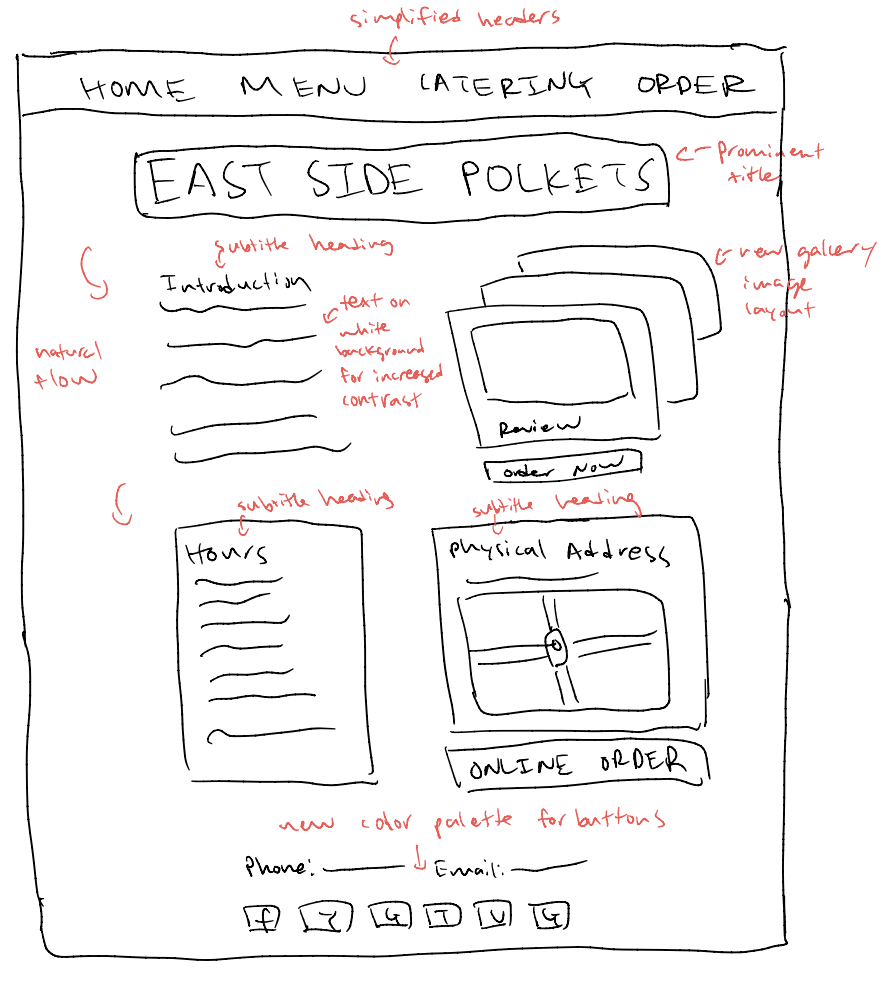 simplified headers
HOME MENU CATERING ORDER
EAST SIDE POLKETS
Prominent
title
subtitle heading
Introduction
new gallery
image
layout
text on
white
background
for increased
contrast
natural
flow
Review
Order Now
subtitle heading
subtitle heading
Hours
Physical Address
ONLINE ORDER
new color palette for buttons
Phone: Email:
f Y G T V G